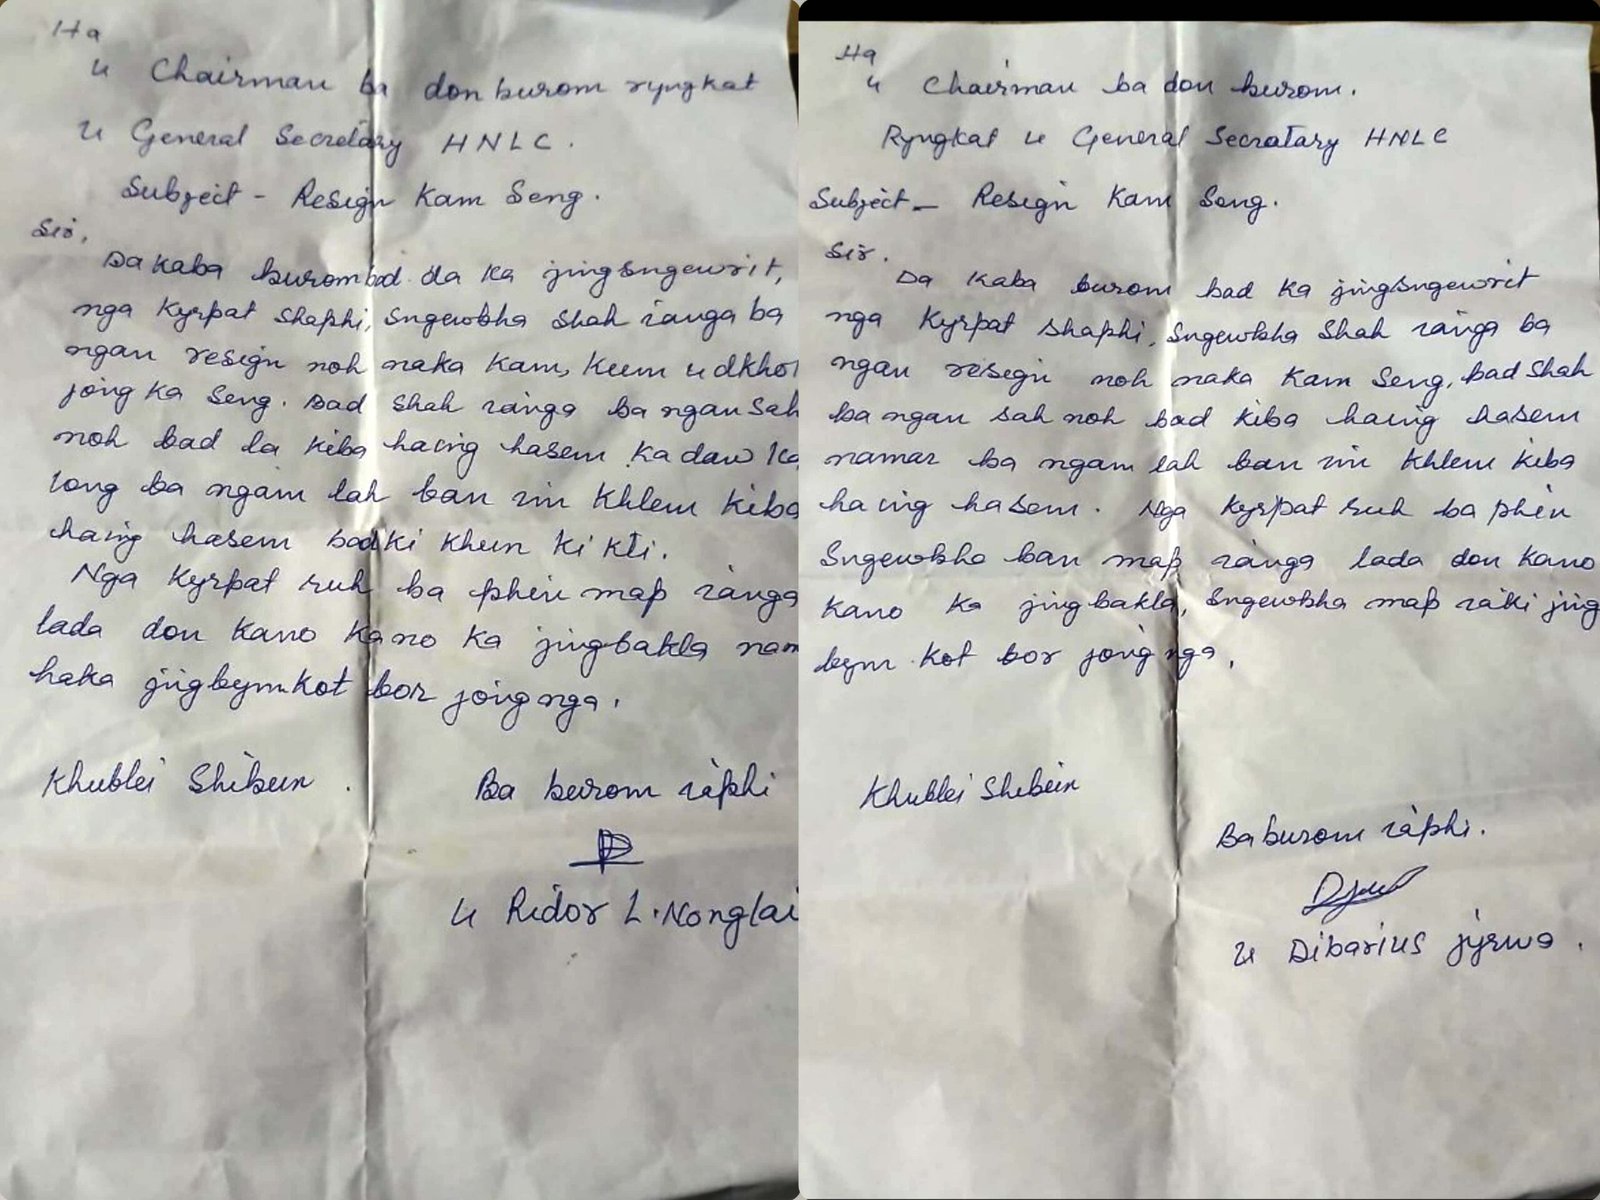 Ha
U Chairman ba don burom ryngkat
U General Secretary HNLC.
Subject - Resign Kam Seng.
Sir,
Da kaba burom bad da ka jingsngewrit,
nga Kyrpat shaphi, sngewbha shah ïanga ba
ngan resign noh naka Kam, Kum u dkhot
jong ka Seng. Bad shah ïanga ba ngan sah
noh bad la kiba haïing hasem ka daw ka
long ba ngam lah ban im Khlem kiba
haïing hasem bad ki khun ki kti.
Nga Kyrpat ruh ba phin map ïanga
lada don kano kano ka jingbakla nam
haka jingbymkot bor jong nga.
Khublei Shibun.
Ba burom ïaphi
U Ridor L. Nonglai
Ha
U Chairman ba don burom.
Ryngkat U General Secratary HNLC
Subject - Resign Kam Seng.
Sir.
Da kaba burom bad ka jingsngewrit
nga Kyrpat shaphi, sngewbha shah ïanga ba
ngan resign noh naka Kam Seng, bad shah
ba ngan sah noh bad kiba haïing hasem
namar ba ngam lah ban im Khlem kiba
haïing hasem. Nga Kyrpat ruh ba phin
sngewbha ban map ïanga lada don kano
kano ka jingbakla, sngewbha map ïaki jing
bym kot bor jong nga,
Khublei Shibun
Ba burom ïaphi.
U Dibarius jyrwa.